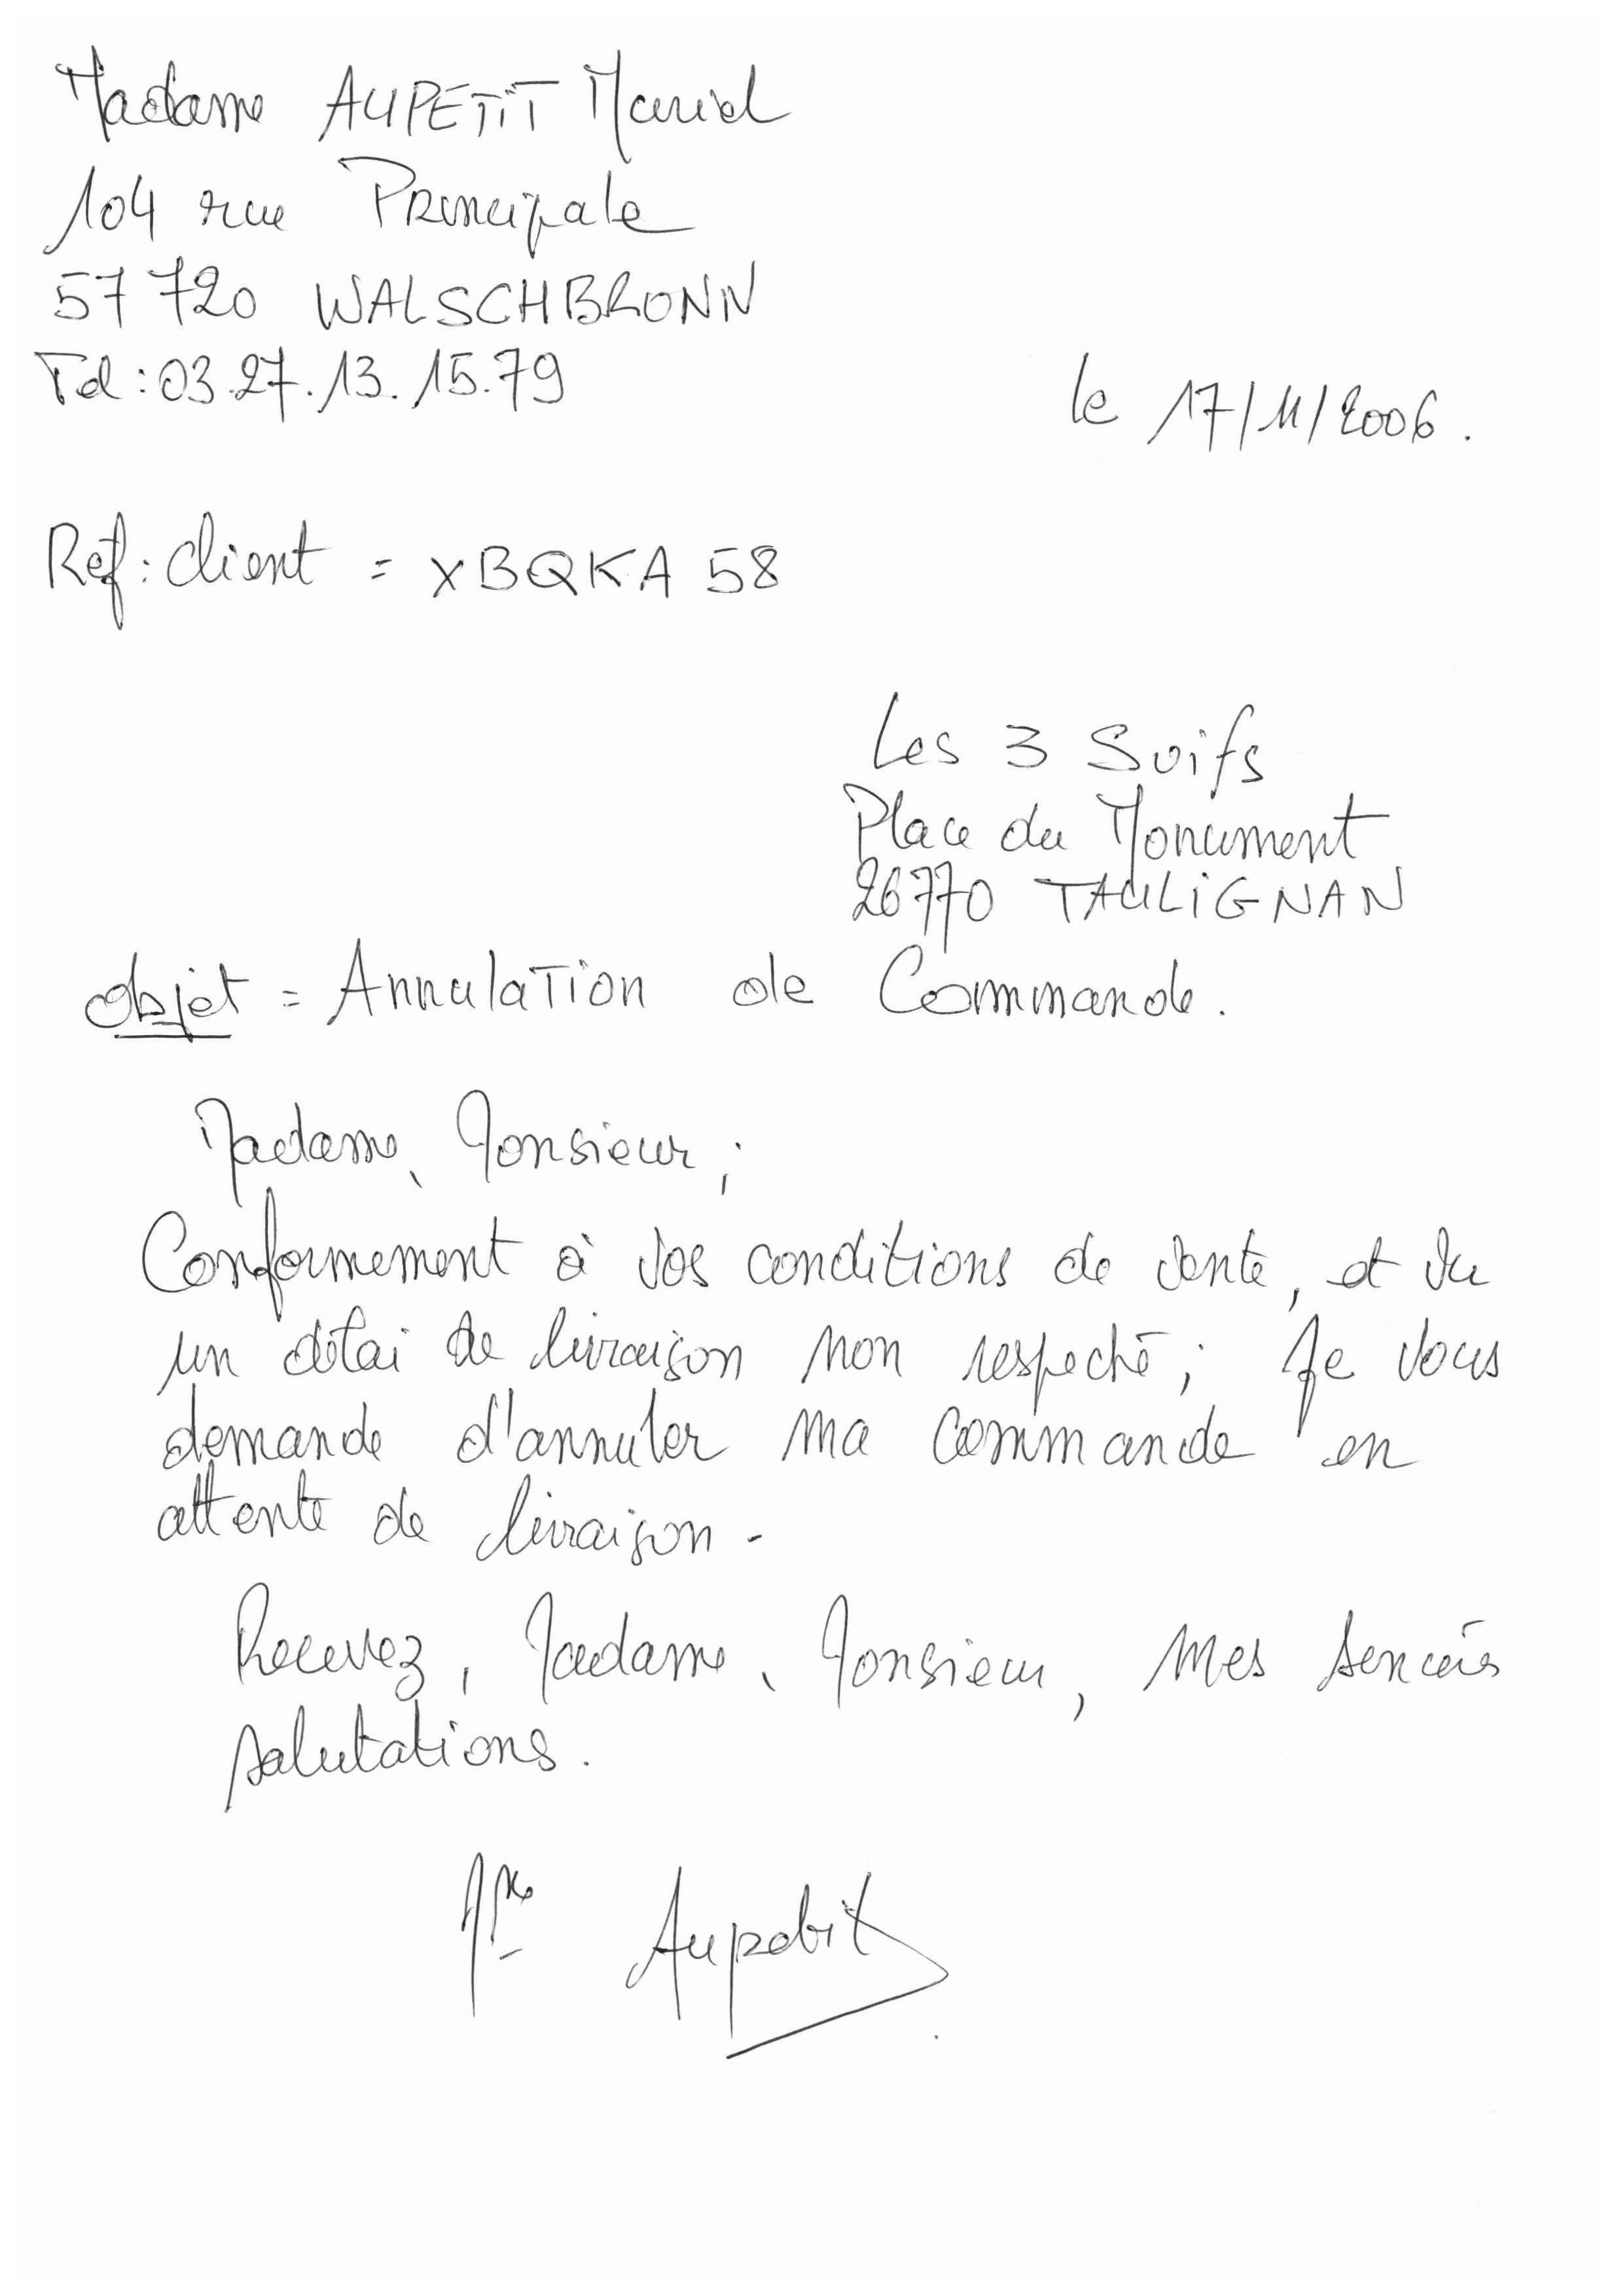 Madame AUPETIT Muriel
104 rue Principale
57 720 WALSCHBRONN
Tel : 03.27.13.15.79
le 17/11/2006.
Ref : client = XBQKA 58
Les 3 Suifs
Place du Monument
26770 TAULIGNAN
objet = Annulation de Commande.
Madame, Monsieur ;
Conformement à vos conditions de vente, et vu
un délai de livraison non respecté ; Je vous
demande d'annuler ma commande en
attente de livraison.
Recevez, Madame, Monsieur, mes
salutations.
Me Aupetit